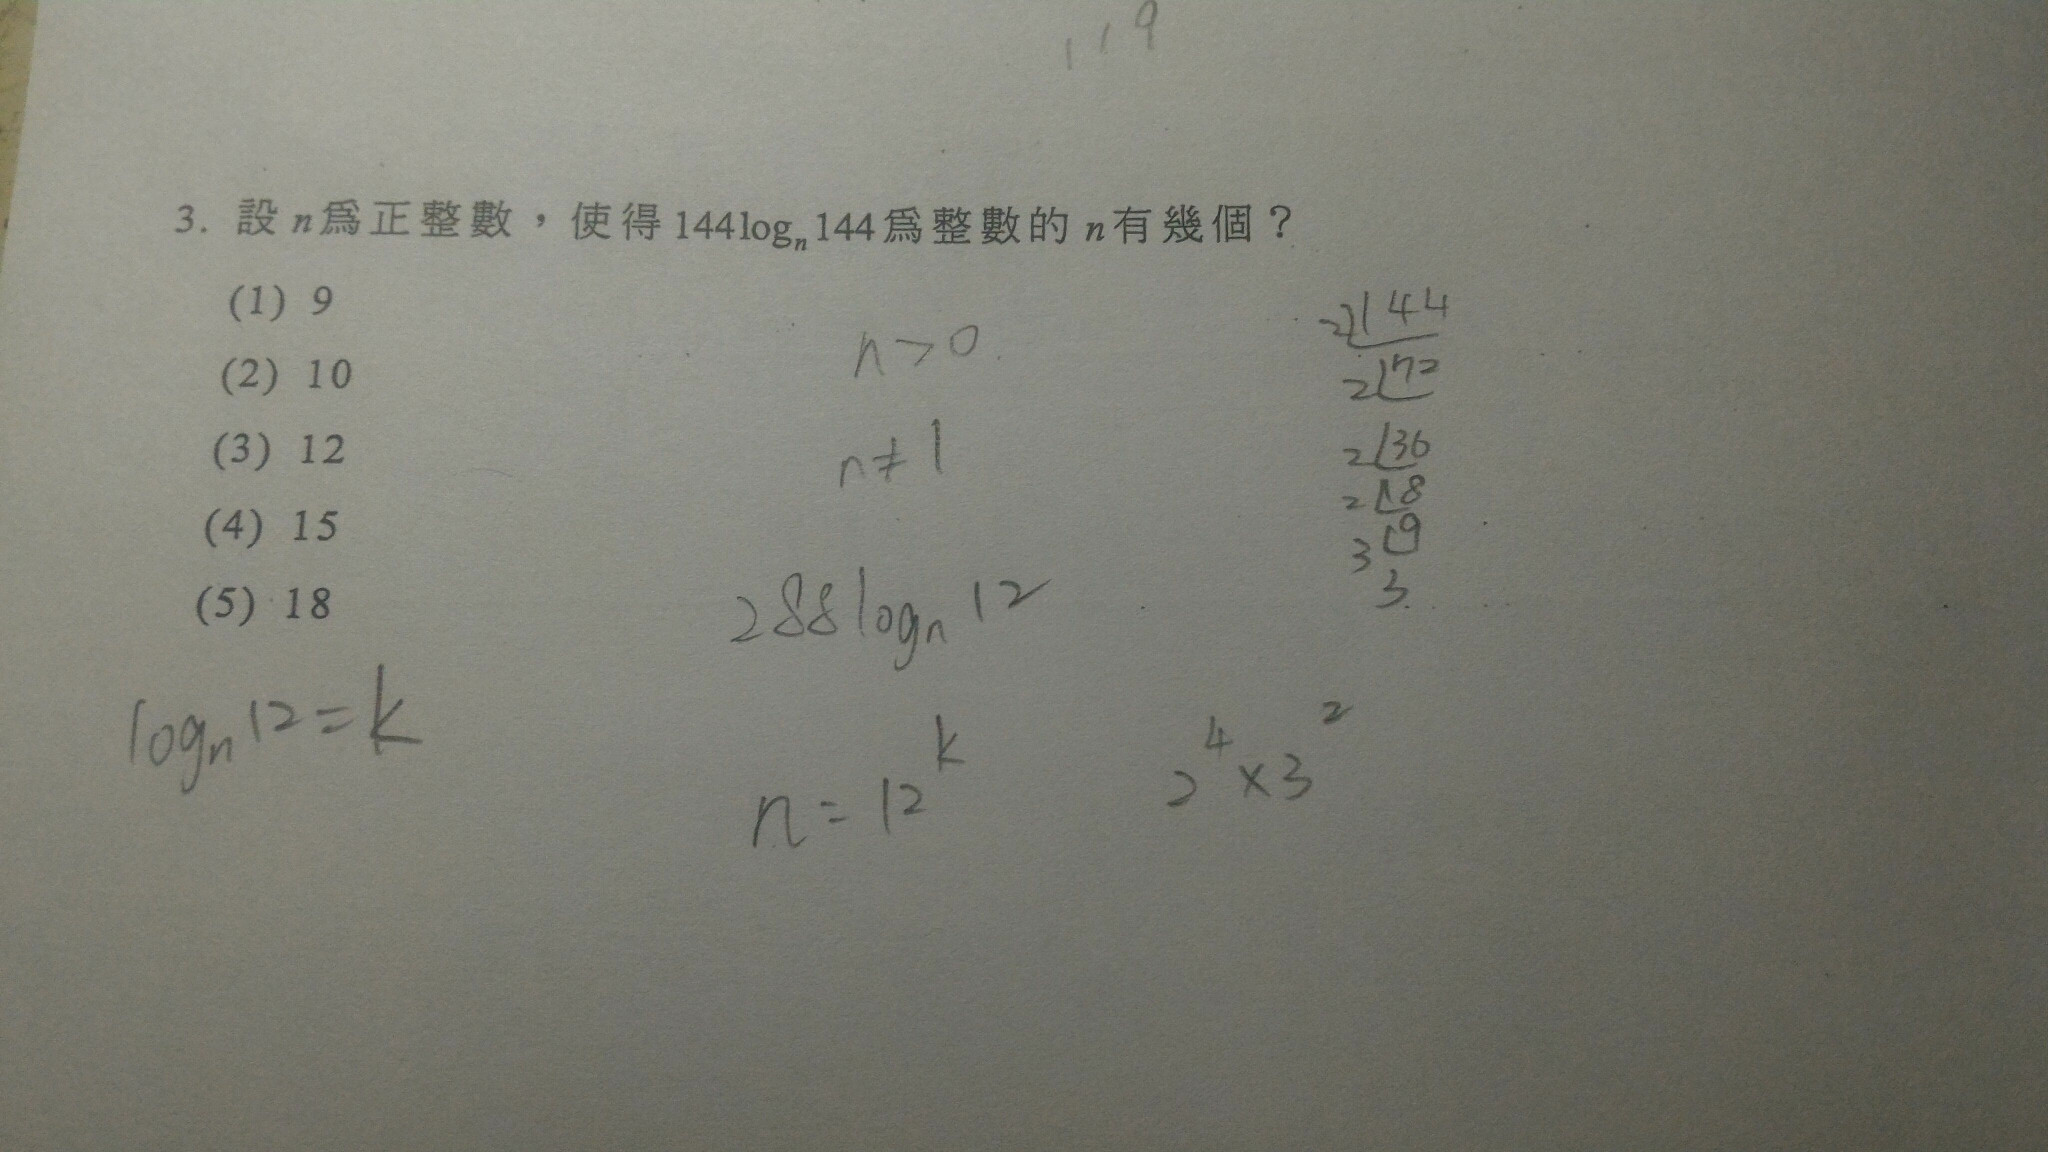 119
3. 設n爲正整數，使得144logₙ144爲整數的n有幾個？
(1) 9
(2) 10
(3) 12
(4) 15
(5) 18
n>0
n≠1
288logₙ12
logₙ12=k
n=12ᵏ
2⁴×3²
2 144
2 72
2 36
2 18
3 9
3